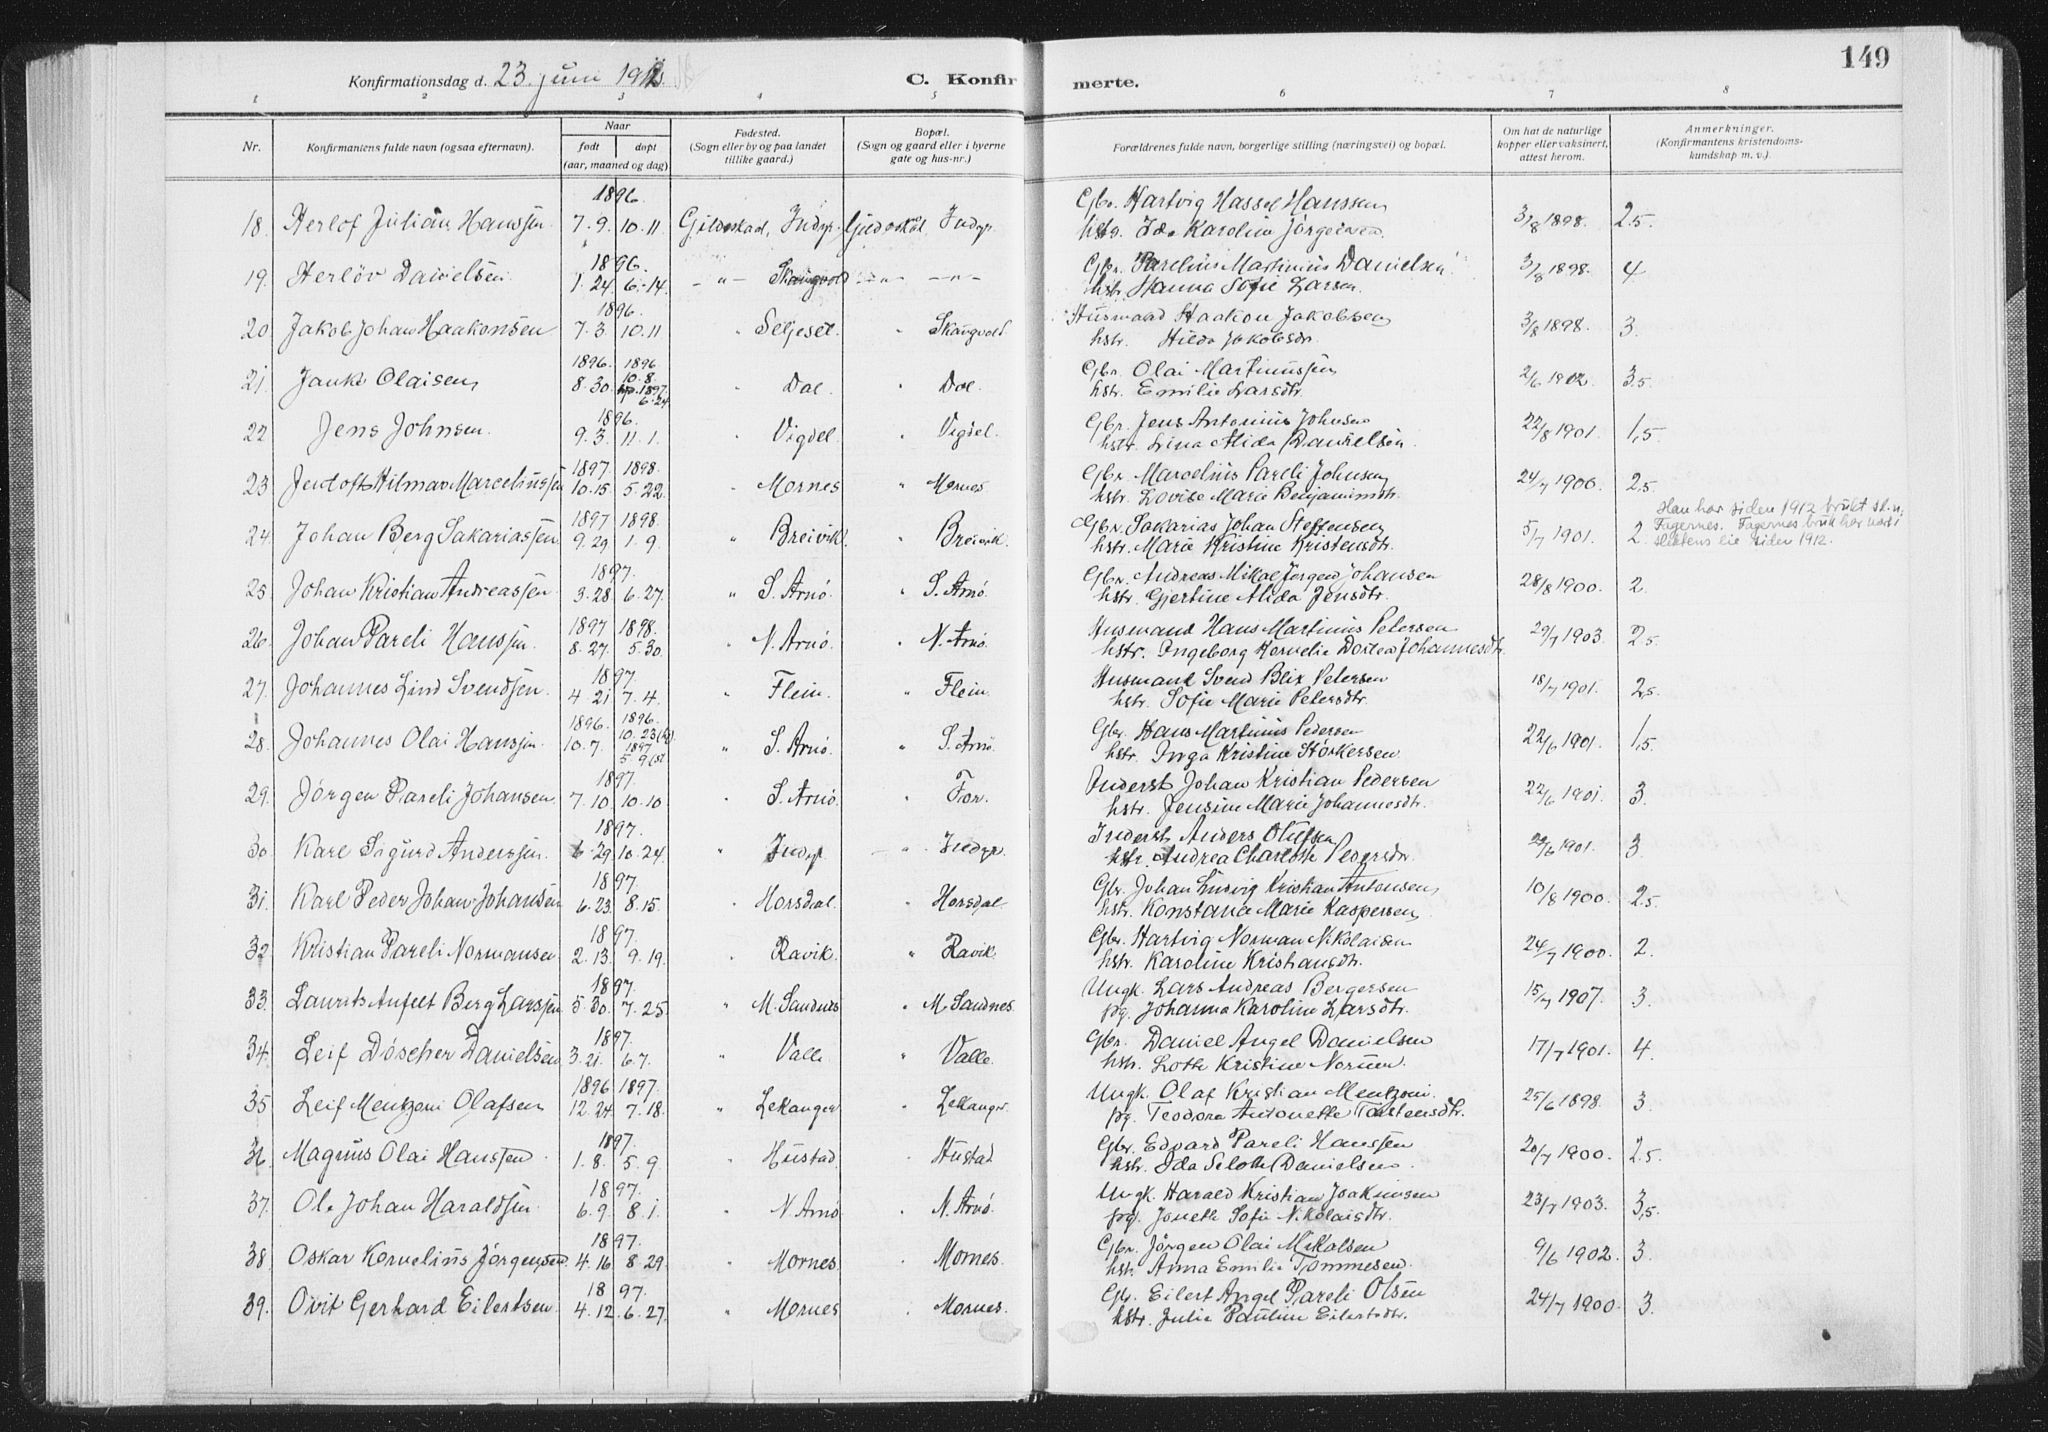 149
Konfirmationsdag d. 23. juni 1912.
C. Konfirmerte.
1 2 3 4 5 6 7 8
Nr. Konfirmantens fulde navn (ogsaa efternavn). Naar født døpt (aar, maaned og dag) Fødested. (Sogn eller by og paa landet tillike gaard.) Bopæl. (Sogn og gaard eller i byerne gate og hus-nr.) Forældrenes fulde navn, borgerlige stilling (næringsvei) og bopæl. Om hat de naturlige kopper eller vaksinert, attest herom. Anmerkninger. (Konfirmantens kristendomskundskap m. v.).
1896. Gbr. Hartvig Hassel Hanssen
18. Herlof Julian Hanssen 7.9. 10.11 Gildeskaal, Indyr. Gildeskaal Indyr. hstr. Ida Karoline Jörgensen. 3/8 1898. 2.5.
1896. Gbr. Parelius Martinius Danielsen
19. Herlöv Danielsen. 1.24. 6.14. -"- Skaugvold -"- -"- hstr. Hanna Sofie Larsen. 3/8 1898. 4
1896. Husmand Haakon Jakobsen
20. Jakob Johan Haakonsen 7.3 10.11 " Seljeset. " Skaugvold hstr. Hilda Jakobsdr. 3/8 1898. 3.
1896. 1896. Gbr. Olai Martinussen
21. Janke Olaisen, 8.30. 10.8. 1897 6.24 " Dal. " Dal. hstr. Emilie Larsdtr. 2/6 1902. 3.5.
1896. Gbr. Jens Antonius Johnsen
22. Jens Johnsen. 9.3. 11.1. " Vigdel. " Vigdel. hstr. Lina Alida Danielsen. 22/8 1901. 1,5.
1897. 1898. Gbr. Marcelius Pareli Johnsen
23. Jentoft Hilmar Marceliussen 10.15. 5.22. " Mornes " Mornes. hstr. Lovise Marie Benjaminsdtr. 24/7 1900. 2.5.
1897 1898. Gbr. Sakarias Johan Steffensen Han har siden 1912 brukt sl.n.
24. Johan Berg Sakariassen 9.29 1.9. " Breivik. " Breivik. hstr. Marie Kristine Kristensdtr. 5/7 1901. 2. Fagernes. Fagernes bruk har vært i slektens eie siden 1912.
1897. Gbr. Andreas Mikal Jørgen Johansen
25. Johan Kristian Andreassen 3.28 6.27. " S. Arnö. " S. Arnö. hstr. Gjertine Alida Jensdtr. 28/8 1900. 2.
1897 1898. Husmand Hans Martinus Petersen
26. Johan Pareli Hanssen. 8.27. 5.30. " N. Arnö. " N. Arnö. hstr. Ingeborg Kornelia Dortea Johannesdtr. 29/7 1903. 2.5.
1897. Husmand Svend Blix Petersen
27. Johannes Lind Svendsen. 4.21 7.4. " Flein. " Flein. hstr. Sofie Marie Petersdtr. 18/7 1901. 2,5.
1896. 1896. Gbr. Hans Martinius Pedersen
28. Johannes Olai Hanssen. 10.7. 10.23 1897 5.9 " S. Arnö. " S. Arnö. hstr. Inga Kristine Störkersen. 22/6 1901. 1,5.
1897. Inderst Johan Kristian Pedersen
29. Jörgen Pareli Johansen. 7.10 10.10 " S. Arnö. " For. hstr. Jensine Marie Johannesdtr. 22/6 1901. 3.
1897. Inderst Anders Olufsen
30. Karl Sigurd Anderssen. 6.29 10.24. " Indyr. " Indyr. hstr. Andrea Charlotte Pedersdtr. 22/6 1901. 3.
1897. Gbr. Johan Ludvig Kristian Antonsen,
31. Karl Peder Johan Johansen 6.23. 8.15. " Horsdal. " Horsdal. hstr. Konstana Marie Kaspersen, 10/8 1900. 2.5.
1897. Gbr. Hartvig Norman Nikolaisen
32. Kristian Pareli Normansen 2.13. 9.19. " Ravik. " Ravik. hstr. Karoline Kristiansdtr. 24/7 1900. 2.
1897. Ungk. Lars Andreas Bergersen
33. Laurits Anfelt Berg Larssen 5.30. 7.25. " M. Sandnes " M. Sandnes. pg. Johanna Karoline Larsdtr. 15/7 1907. 3.
1897. Gbr. Daniel Angel Danielsen
34. Leif Döscher Danielsen 3.21. 6.7. " Valle " Valle. hstr. Lotte Kristine Norum. 17/7 1901. 4.
1896 1897. Ungk. Olaf Kristian Mentzoni.
35. Leif Mentzoni Olafsen 12.24. 7.18. " Lekanger " Lekanger. pg. Teodora Antonette Torstensdtr. 25/6 1898. 3.
1897. Gbr. Edvard Pareli Hanssen
36. Magnus Olai Hanssen. 1.8. 5.9. " Hustad. " Hustad hstr. Ida Selotte Danielsen. 20/7 1900. 2.5.
1897. Ungk. Harald Kristian Joakimsen
37. Ole Johan Haraldsen. 6.9. 8.1. " N. Arnö " N. Arnö. pg. Jonette Sofie Nikolaisdtr. 23/7 1903. 3,5.
1897. Gbr. Jörgen Olai Mikalsen
38. Oskar Kornelius Jörgensen 4.16 8.29. " Mornes. " Mornes. hstr. Anna Emilie Tommesen. 9/6 1902. 3.
1897. Gbr. Eilert Angel Pareli Olsen
39. Ovit Gerhard Eilertsen 4.12. 6.27. " Mornes " Mornes. hstr. Julie Pauline Eilertsdtr. 24/7 1900. 3.